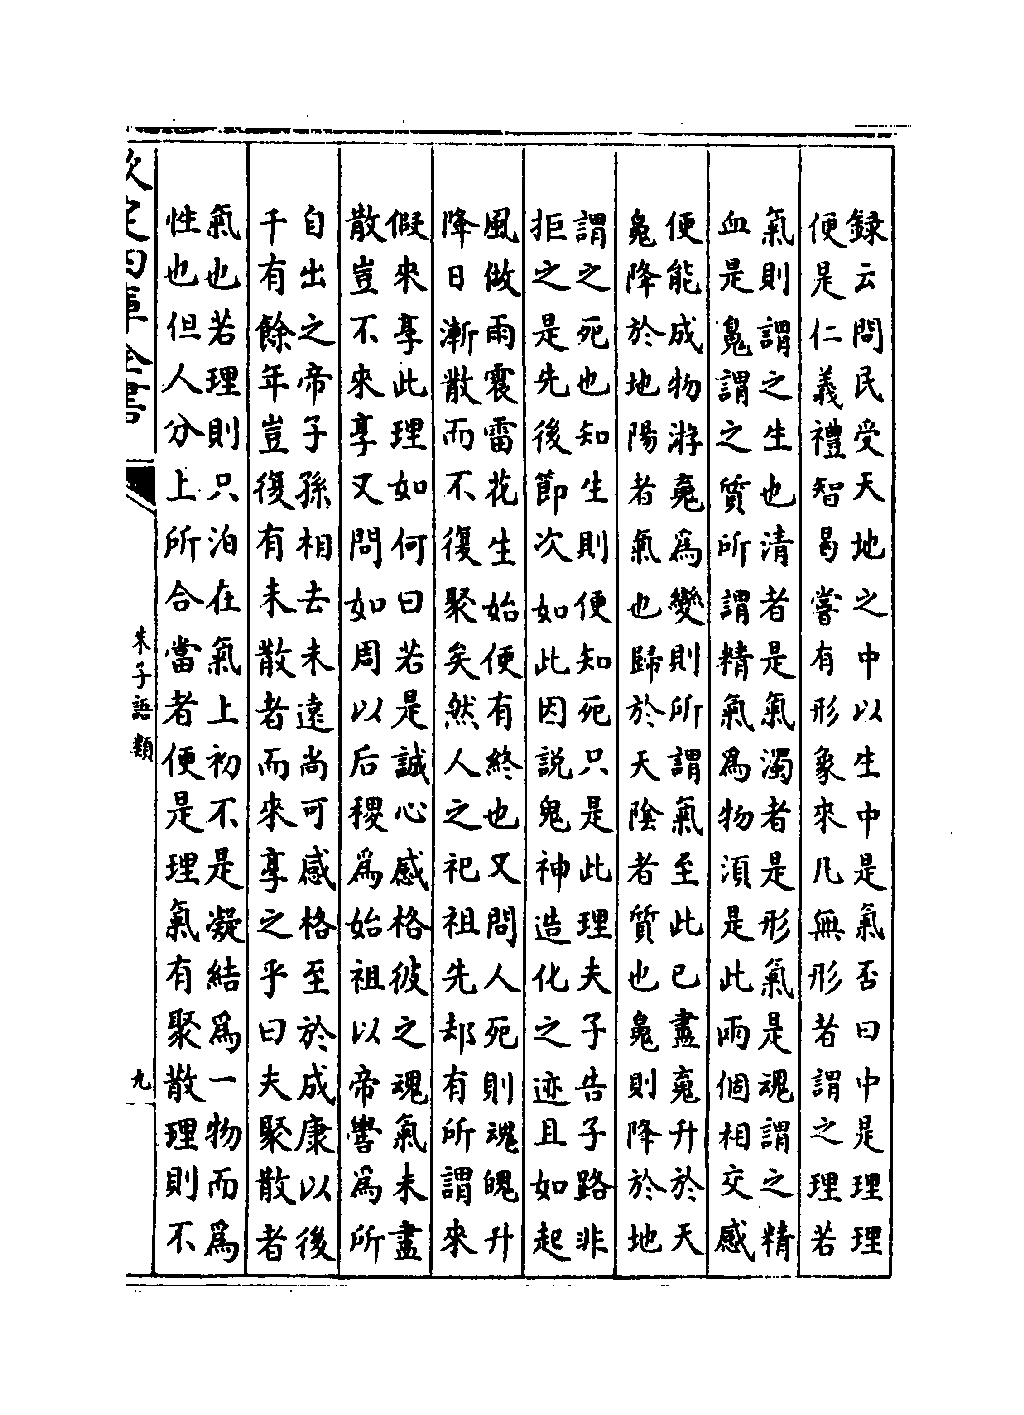 録云問民受天地之中以生中是氣否曰中是理理
便是仁義禮智曷嘗有形象來凡無形者謂之理若
氣則謂之生也清者是氣濁者是形氣是魂謂之精
血是鬽謂之質所謂精氣為物湏是此兩個相交感
便能成物游䰟為變則所謂氣至此已盡䰟升於天
鬽降於地陽者氣也歸於天隂者質也鬽則降於地
謂之死也知生則便知死只是此理夫子告子路非
拒之是先後節次如此因說鬼神造化之迹且如起
風做雨震雷花生始便有終也又問人死則魂魄升
降日漸散而不復聚矣然人之祀祖先却有所謂來
假來享此理如何曰若是誠心感格彼之魂氣未盡
散豈不來享又問如周以后稷為始祖以帝嚳為所
自出之帝子孫相去未遠尚可感格至於成康以後
千有餘年豈復有未散者而來享之乎曰夫聚散者
氣也若理則只泊在氣上初不是凝結為一物而為
性也但人分上所合當者便是理氣有聚散理則不
欽定四庫全書
朱子語類
九